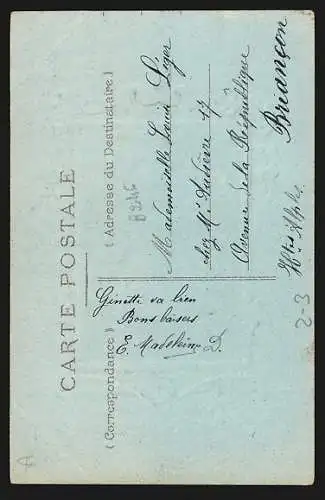 CARTE POSTALE
(Correspondance)
(Adresse du Destinataire)
Ginette va bien
Bons baisers
E. Madeleine D.
Mademoiselle Léger
chez Mr 17
Avenue de la République
Briançon
Htes Alpes
2-3